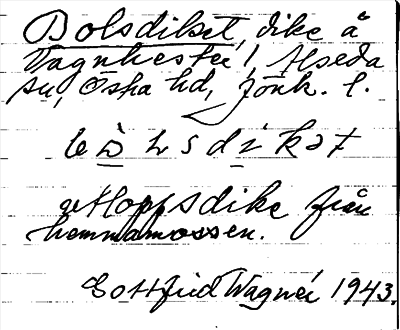 Bolsdiket, dike å
Vagnhester, Alseda
sn, Östra hd, Jönk. l.
utloppsdike från
hemmamossen.
Gottfrid Wagnér 1943.